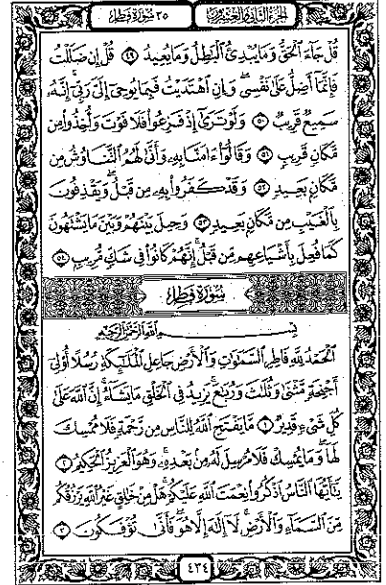 الجزء الثاني والعشرون ٣٥ سورة فطر
قُلْ جَاءَ الْحَقُّ وَمَا يُبْدِئُ الْبَٰطِلُ وَمَا يُعِيدُ ٤٩ قُلْ إِن ضَلَلْتُ
فَإِنَّمَا أَضِلُّ عَلَىٰ نَفْسِي وَإِنِ اهْتَدَيْتُ فَبِمَا يُوحِي إِلَيَّ رَبِّي إِنَّهُ
سَمِيعٌ قَرِيبٌ ٥٠ وَلَوْ تَرَىٰ إِذْ فَزِعُوا فَلَا فَوْتَ وَأُخِذُوا مِن
مَّكَانٍ قَرِيبٍ ٥١ وَقَالُوا ءَامَنَّا بِهِ وَأَنَّىٰ لَهُمُ التَّنَاوُشُ مِن
مَّكَانٍ بَعِيدٍ ٥٢ وَقَدْ كَفَرُوا بِهِ مِن قَبْلُ وَيَقْذِفُونَ
بِالْغَيْبِ مِن مَّكَانٍ بَعِيدٍ ٥٣ وَحِيلَ بَيْنَهُمْ وَبَيْنَ مَا يَشْتَهُونَ
كَمَا فُعِلَ بِأَشْيَاعِهِم مِّن قَبْلُ إِنَّهُمْ كَانُوا فِي شَكٍّ مُّرِيبٍ ٥٤
سُورَةُ فَطِرٍ
بِسْمِ اللَّهِ الرَّحْمَٰنِ الرَّحِيمِ
الْحَمْدُ لِلَّهِ فَاطِرِ السَّمَٰوَٰتِ وَالْأَرْضِ جَاعِلِ الْمَلَٰئِكَةِ رُسُلًا أُولِي
أَجْنِحَةٍ مَّثْنَىٰ وَثُلَٰثَ وَرُبَٰعَ يَزِيدُ فِي الْخَلْقِ مَا يَشَاءُ إِنَّ اللَّهَ عَلَىٰ
كُلِّ شَيْءٍ قَدِيرٌ ١ مَّا يَفْتَحِ اللَّهُ لِلنَّاسِ مِن رَّحْمَةٍ فَلَا مُمْسِكَ
لَهَا وَمَا يُمْسِكْ فَلَا مُرْسِلَ لَهُ مِن بَعْدِهِ وَهُوَ الْعَزِيزُ الْحَكِيمُ ٢
يَٰأَيُّهَا النَّاسُ اذْكُرُوا نِعْمَتَ اللَّهِ عَلَيْكُمْ هَلْ مِنْ خَٰلِقٍ غَيْرُ اللَّهِ يَرْزُقُكُم
مِّنَ السَّمَاءِ وَالْأَرْضِ لَا إِلَٰهَ إِلَّا هُوَ فَأَنَّىٰ تُؤْفَكُونَ ٣
٤٣٤